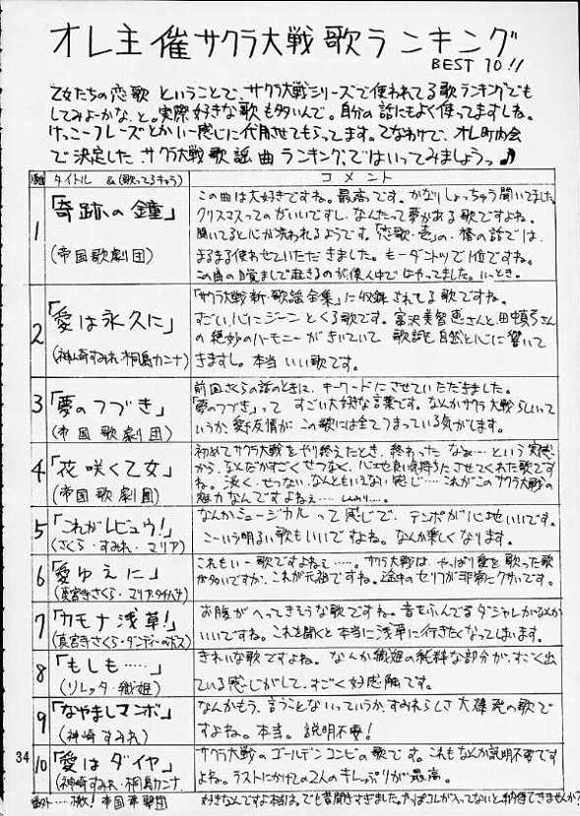 オレ主催サクラ大戦歌ランキング
BEST 10!!
乙女たちの恋歌 ということで、サクラ大戦シリーズで使われてる歌ランキングでも
してみよーかな、と。実際好きな歌も多いんで。自分の話にもよく使ってますしね。
けっこーフレーズとかいー感じに代用させてもらってます。てなわけで、オレ町内会
で決定した サクラ大戦歌謡曲ランキング、ではいってみましょうっ♪
タイトル &(歌ってるキャラ)
コメント
1
「奇跡の鐘」
(帝国歌劇団)
この曲は大好きですね。最高です。かなりしょっちゅう聞いてました。
クリスマスってのがいいですし、なんたって夢がある歌ですよね。
聞いてると心が洗われるようです。「恋歌・壱」の 話では、
まるまる使わせていただきました。もーダントツで1位ですね。
この曲の目覚ましで起きるのが 中ではやってました。いっとき。
2
「愛は永久に」
(神崎すみれ・桐島カンナ)
「サクラ大戦 新・歌謡全集」に収録されてる歌ですね。
すごい、心にジーンとくる歌です。富沢美智恵さんと田中真弓さん
の絶妙のハーモニーがきいていて 歌詞も自然と心に響いて
きますし。本当いい歌です。
3
「夢のつづき」
(帝国歌劇団)
前回さくらの話のときに、キーワードにさせていただきました。
「夢のつづき」って すごい大好きな言葉です。なんかサクラ大戦らしいって
いうか、愛と友情が この歌には全てつまっている気がします。
4
「花咲く乙女」
(帝国歌劇団)
初めてサクラ大戦をやり終えたとき、終わったなぁ…という実感
から、なんだかすごくせつなく、心地良い気持ちにさせてくれた歌です
ね。淡く、せつない、なんともいえない感じ… これがこのサクラ大戦の
魅力なんですよねぇ…。しんみり…。
5
「これがレビュウ!」
(さくら・すみれ・マリア)
なんかミュージカルって感じで、テンポが心地いいです。
こーいう明るい歌もいいですよね。なんか楽しくなります。
6
「愛ゆえに」
(真宮寺さくら・マリアタチバナ)
これもいー歌ですよねぇ……。サクラ大戦は、やっぱり愛を歌った歌
が多いですが、これが元祖ですね。途中のセリフが非常にクサいです。
7
「カモナ浅草!」
(真宮寺さくら・ダンディーのボス)
お腹がへってきそうな歌ですね。音をふんでるダジャレがなんか
いいですね。これを聞くと本当に浅草に行きたくなってしまいます。
8
「もしも……」
(ソレッタ・織姫)
きれいな歌ですよね。なんか織姫の純粋な部分が、すごく出
ている感じがして、すごく好感触です。
9
「なやましマンボ」
(神崎すみれ)
なんかもう、言うことないっていうか、すみれらしさ大爆発の歌で
すよね。本当。説明不要!
34
10
「愛はダイヤ」
(神崎すみれ・桐島カンナ)
サクラ大戦のゴールデンコンビの歌です。これもなんか説明不要です
よね。ラストにかけての2人のキレっぷりが最高。
番外……激!帝国華撃団
好きなんですよ本当は。でも昔聞きすぎました。やっぱコレが入ってないと、納得できませんか?